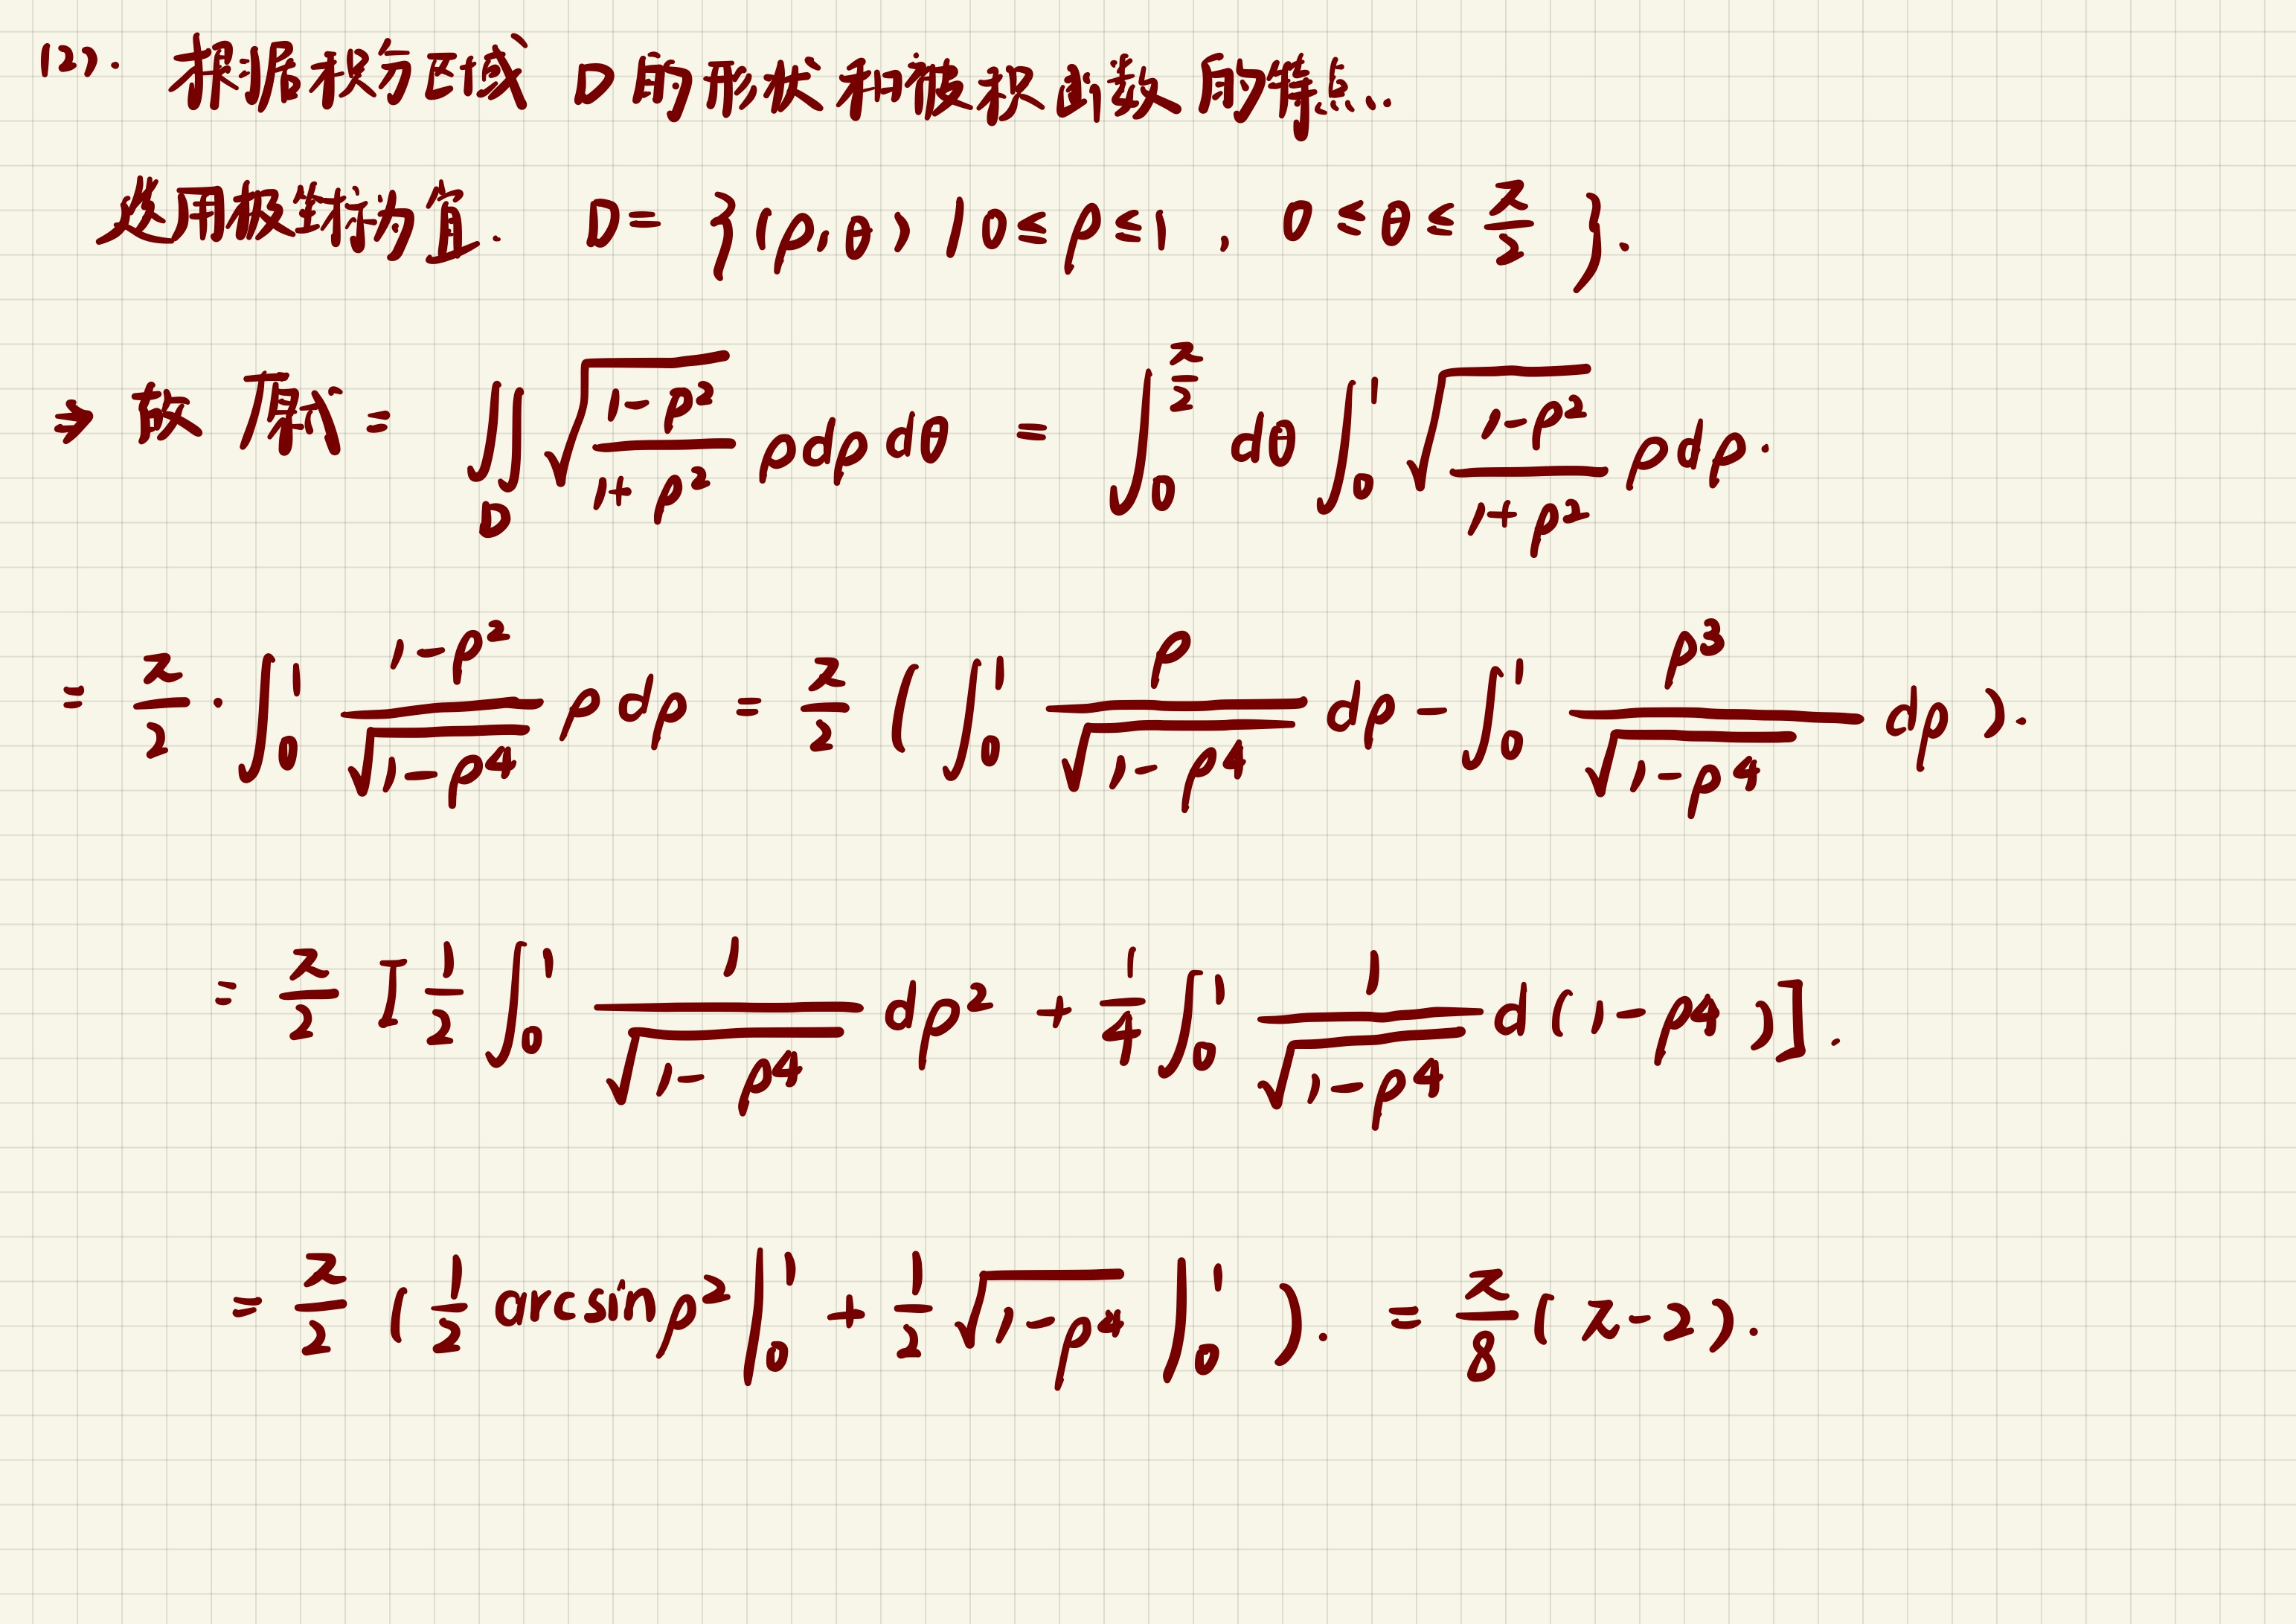 (2). 根据积分区域 D 的形状和被积函数的特点.
选用极坐标为宜. D = {(ρ,θ) | 0≤ρ≤1, 0≤θ≤π/2}.
⇒ 故 原式 = ∬_D √((1-ρ²)/(1+ρ²)) ρdρdθ = ∫_0^{π/2} dθ ∫_0^1 √((1-ρ²)/(1+ρ²)) ρdρ.
= π/2 · ∫_0^1 (1-ρ²)/√(1-ρ⁴) ρdρ = π/2 (∫_0^1 ρ/√(1-ρ⁴) dρ - ∫_0^1 ρ³/√(1-ρ⁴) dρ).
= π/2 [1/2 ∫_0^1 1/√(1-ρ⁴) dρ² + 1/4 ∫_0^1 1/√(1-ρ⁴) d(1-ρ⁴)].
= π/2 (1/2 arcsinρ² |_0^1 + 1/2 √(1-ρ⁴) |_0^1). = π/8 (π-2).